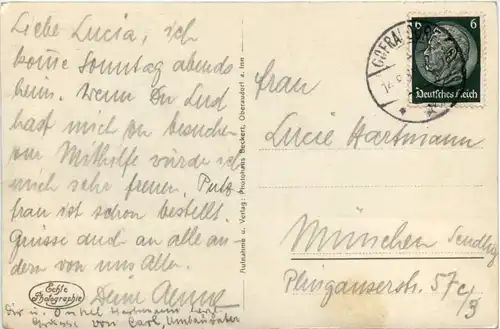 Liebe Lucia, ich
komme Sonntag abends
heim. Wenn Du Lust
hast mich zu besuchen
zur Mithilfe würde ich
mich sehr freuen. Putz
frau ist schon bestellt.
Grüsse auch an alle an-
dern von uns Allen.
Deine
Dir u. Onkel Hartmann
Grüsse von Carl,
Echte
Photographie
Aufnahme u. Verlag: Photohaus Beckert, Oberaudorf a. Inn
6
Deutsches Reich
Frau
Lucie Hartmann
München Sendlg
Plinganserstr. 57